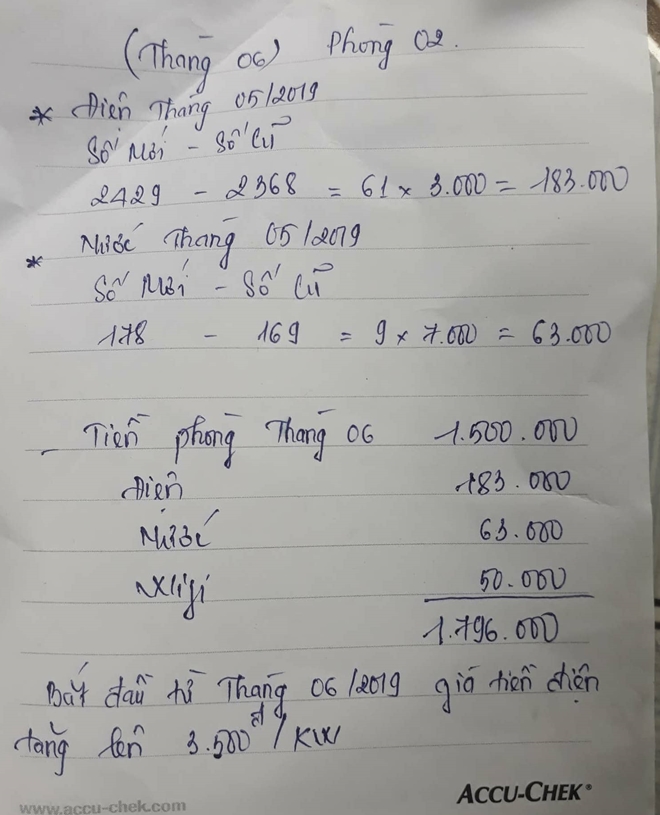 (Tháng 06) Phòng 02.
* Điện Tháng 05/2019
Số Mới - Số Cũ
2429 - 2368 = 61 x 3.000 = 183.000
* Nước Tháng 05/2019
Số Mới - Số Cũ
178 - 169 = 9 x 7.000 = 63.000
- Tiền phòng Tháng 06 1.500.000
Điện 183.000
Nước 63.000
50.000
1.796.000
Bắt đầu từ Tháng 06/2019 giá tiền điện
tăng lên 3.500đ/KW
www.accu-chek.com
ACCU-CHEK®